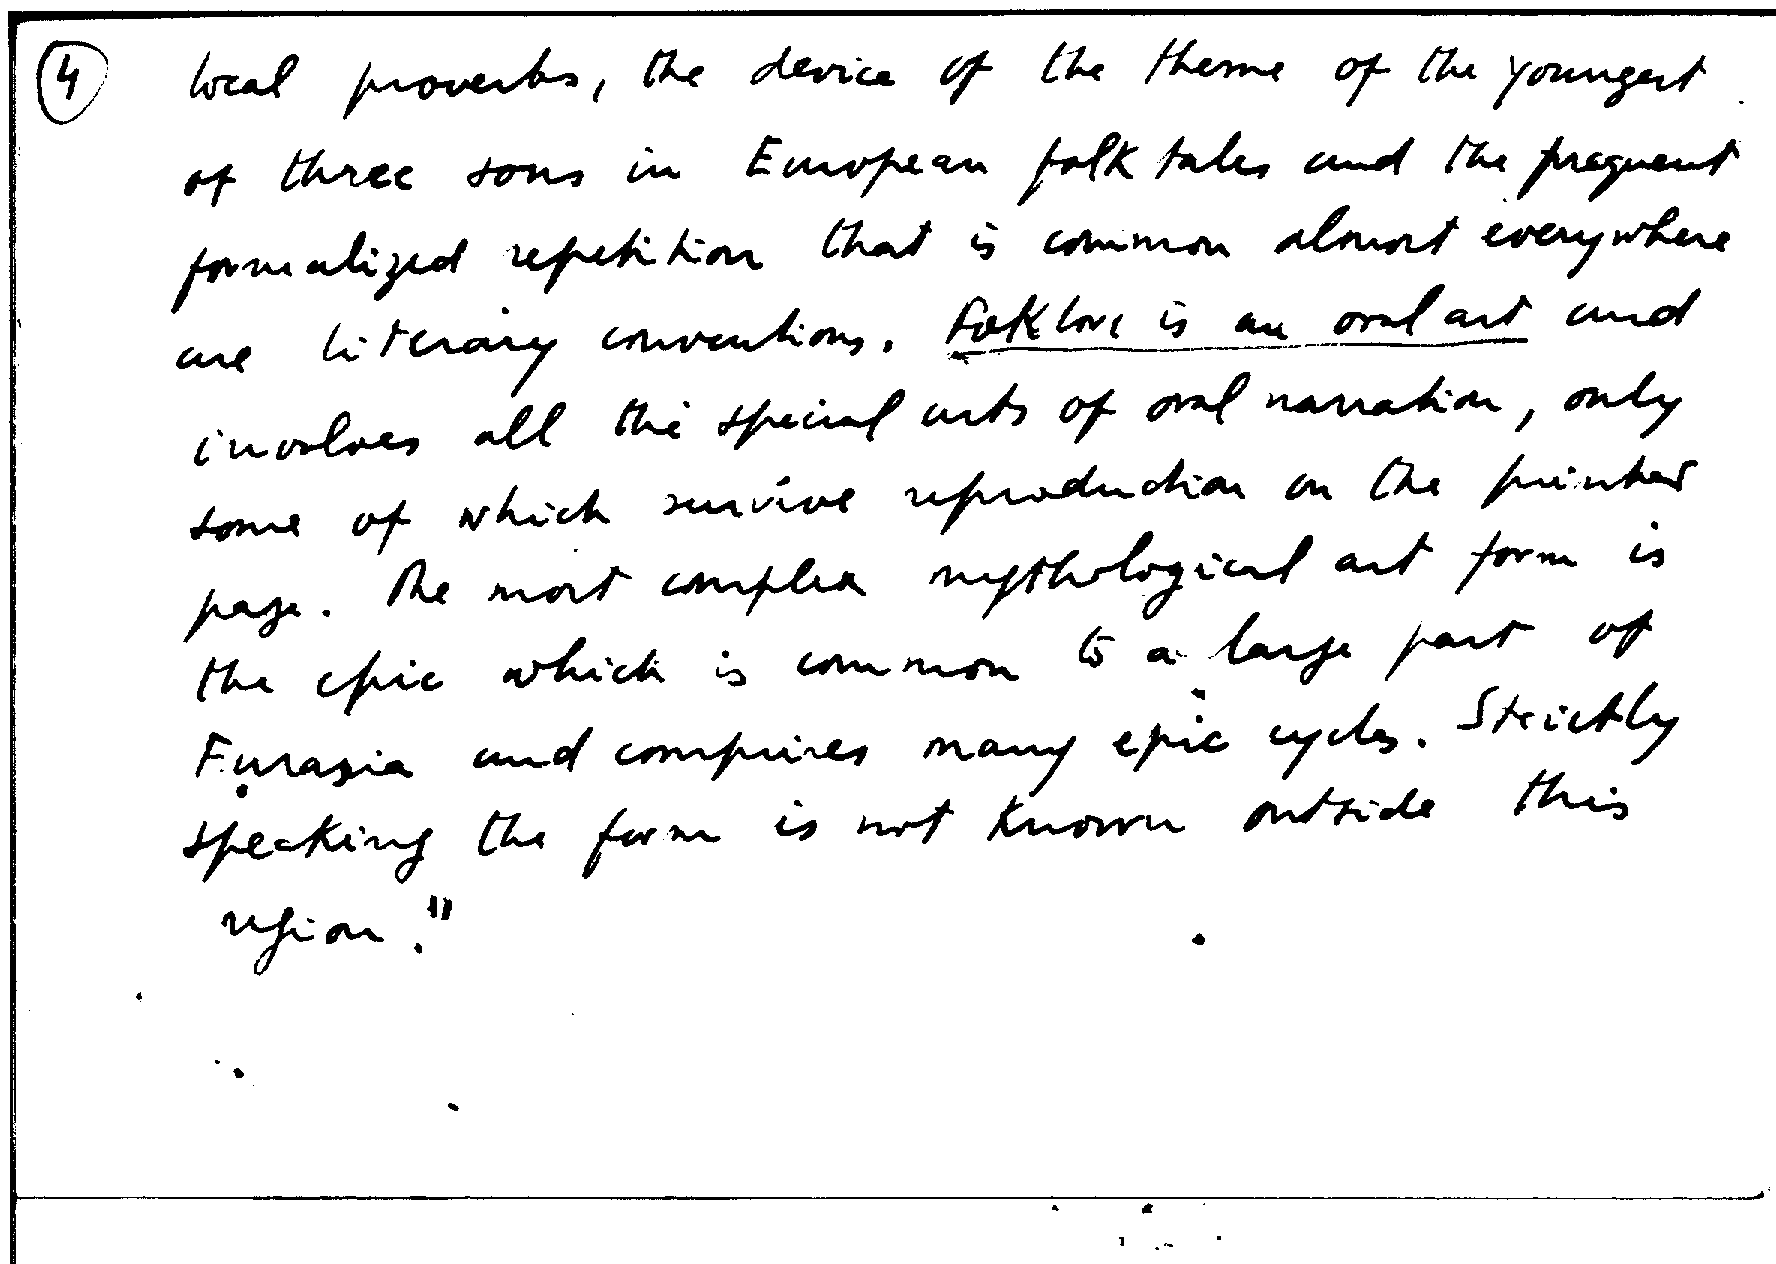 4 local proverbs, the device of the theme of the youngest
of three sons in European folk tales and the frequent
formalized repetition that is common almost everywhere
are literary conventions. Folklore is an oral art and
involves all the special arts of oral narration, only
some of which survive reproduction on the printed
page. The most complex mythological art form is
the epic which is common to a large part of
Eurasia and comprises many epic cycles. Strictly
speaking the form is not known outside this
region."